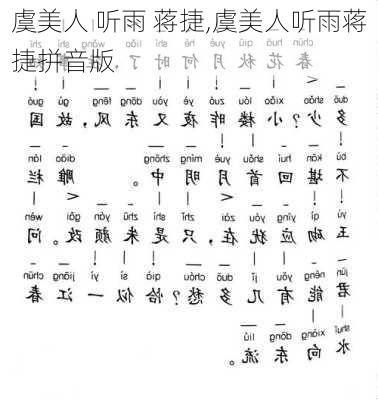 虞美人 听雨 蒋捷,虞美人听雨蒋
捷拼音版
春花秋月何时了，
duō shǎo xiǎo lóu zuó yè yòu dōng fēng gù guó
多少？小楼昨夜又东风，故国
bù kān huí shǒu yuè míng zhōng diāo lán
不堪回首月明中。 雕栏
yù qì yīng yóu zài zhǐ shì zhū yán gǎi wèn
玉砌应犹在，只是朱颜改。问
jūn néng yǒu jǐ duō chóu qià sì yì jiāng chūn
君能有几多愁？恰似一江春
shuǐ xiàng dōng liú
水向东流。